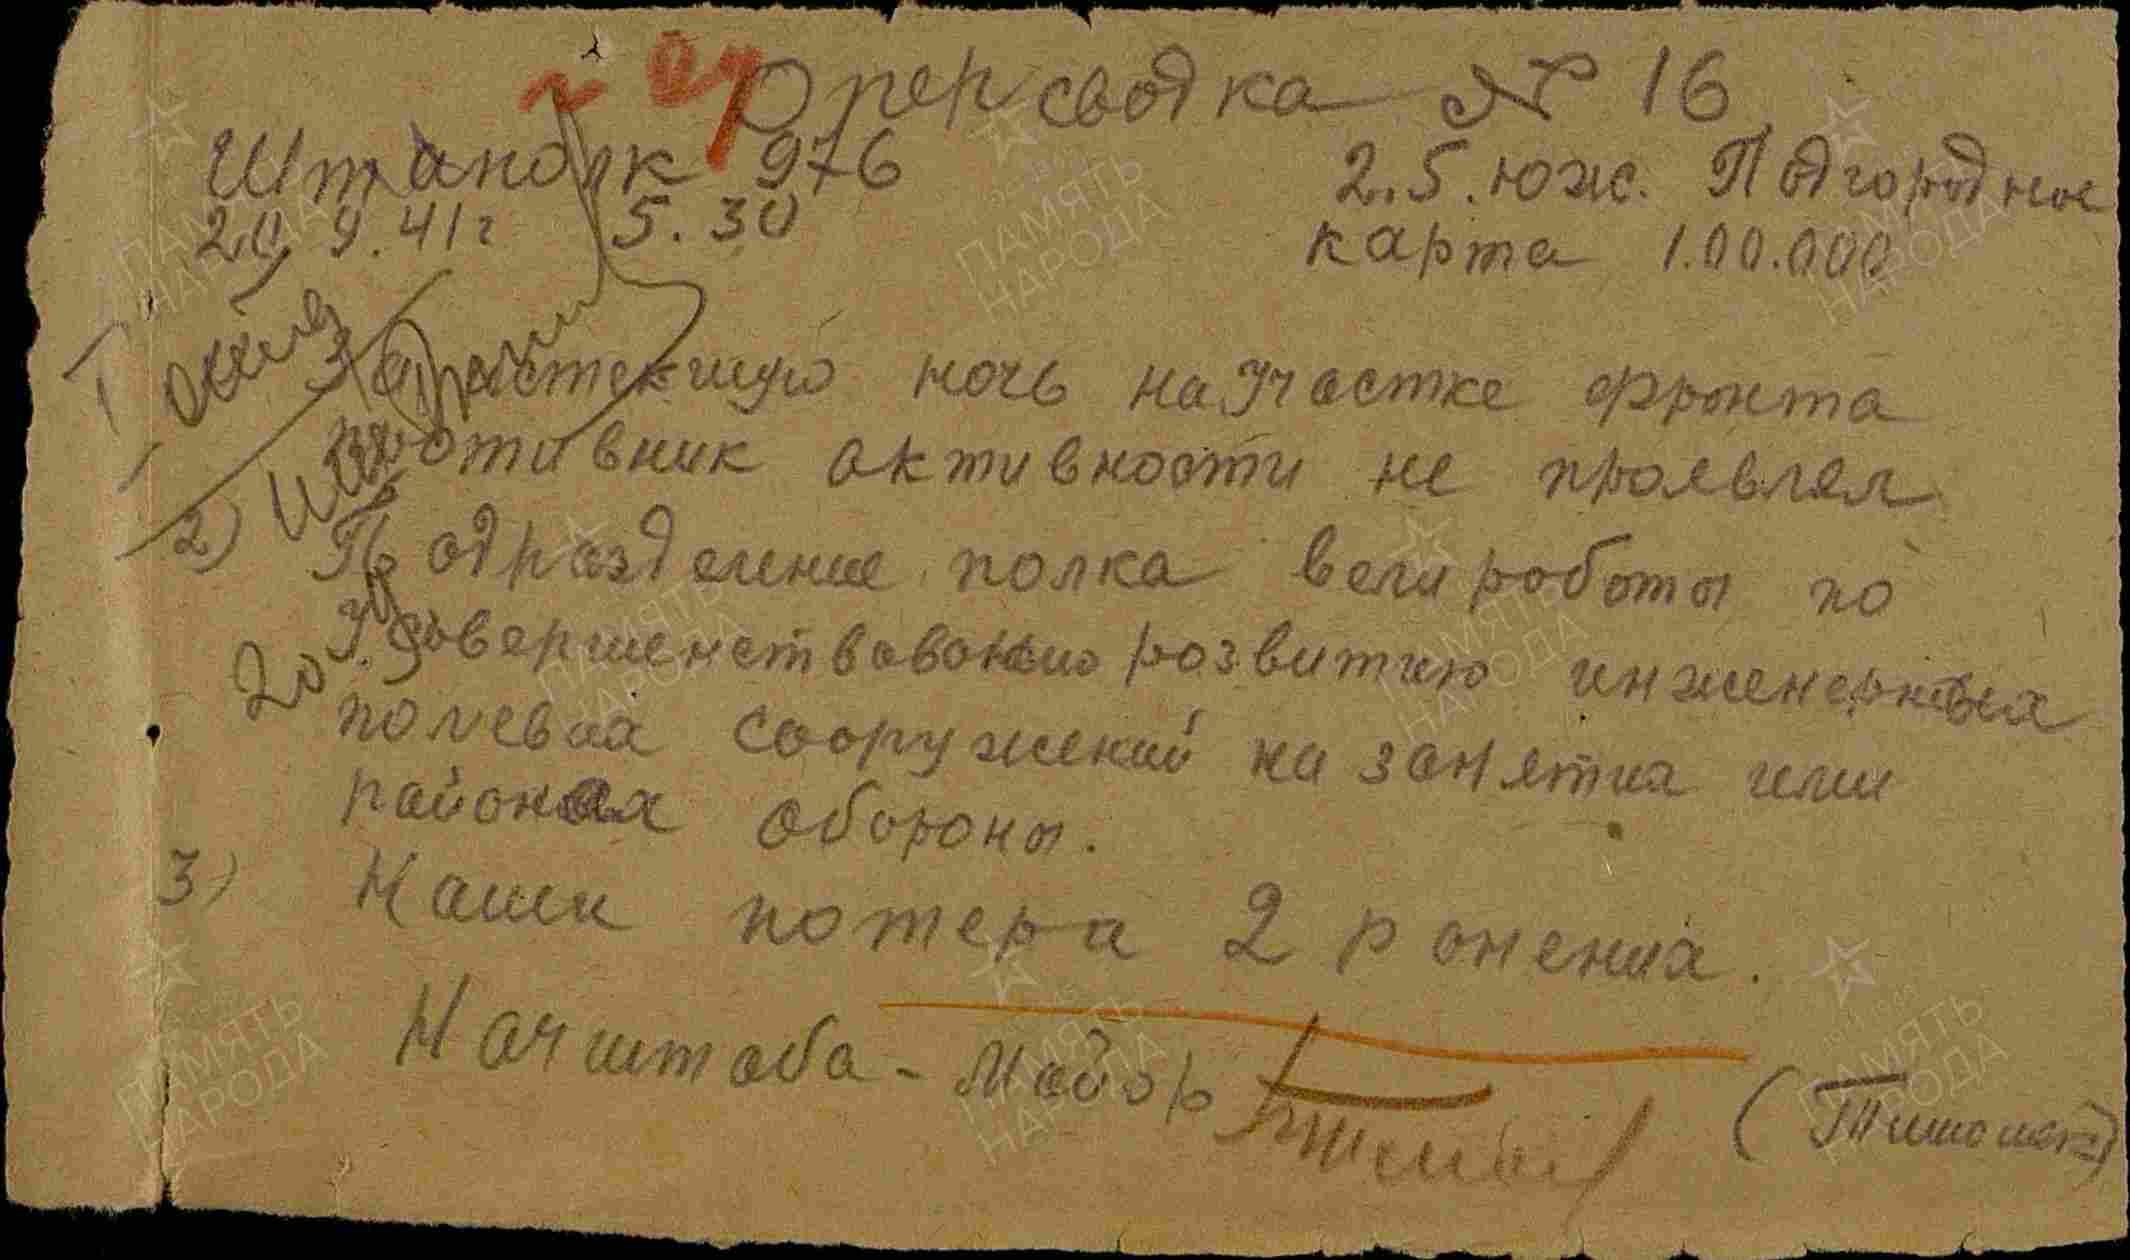 Оперсводка № 16
Штандрк 976 2.5. юж. Подгородное
20 9.41г 5.30 карта 1.00.000
1) За истекшую ночь на участке фронта
противник активности не проявлял
2) Подразделение полка вели работы по
усовершенствованию развитию инженерных
полевых сооружений на занятиа ими
районах обороны.
3) Наши потера 2 раненыа.
Начштаба - Майор (Тимошен)